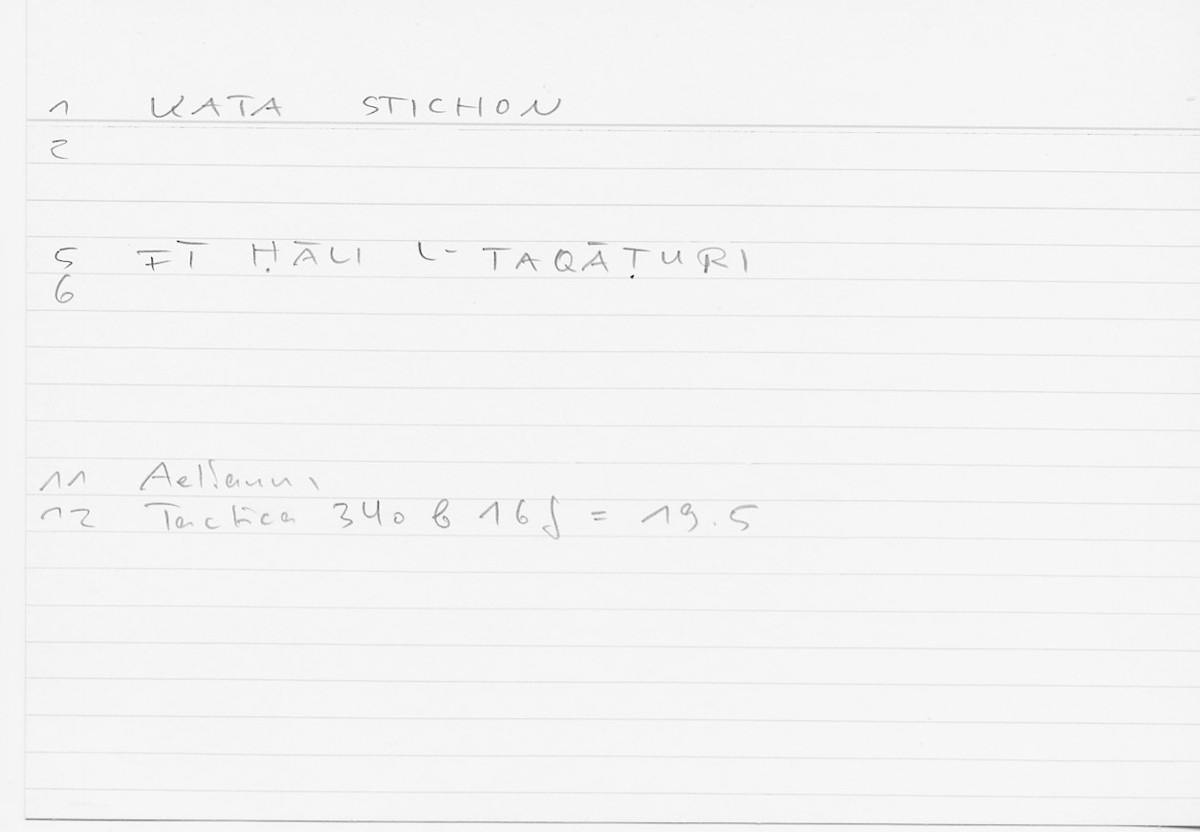 1 KATA STICHON
2
5 FĪ ḤĀLI L-TAQĀṬURI
6
11 Aelianus
12 Tactica 340 b 16f = 19.5